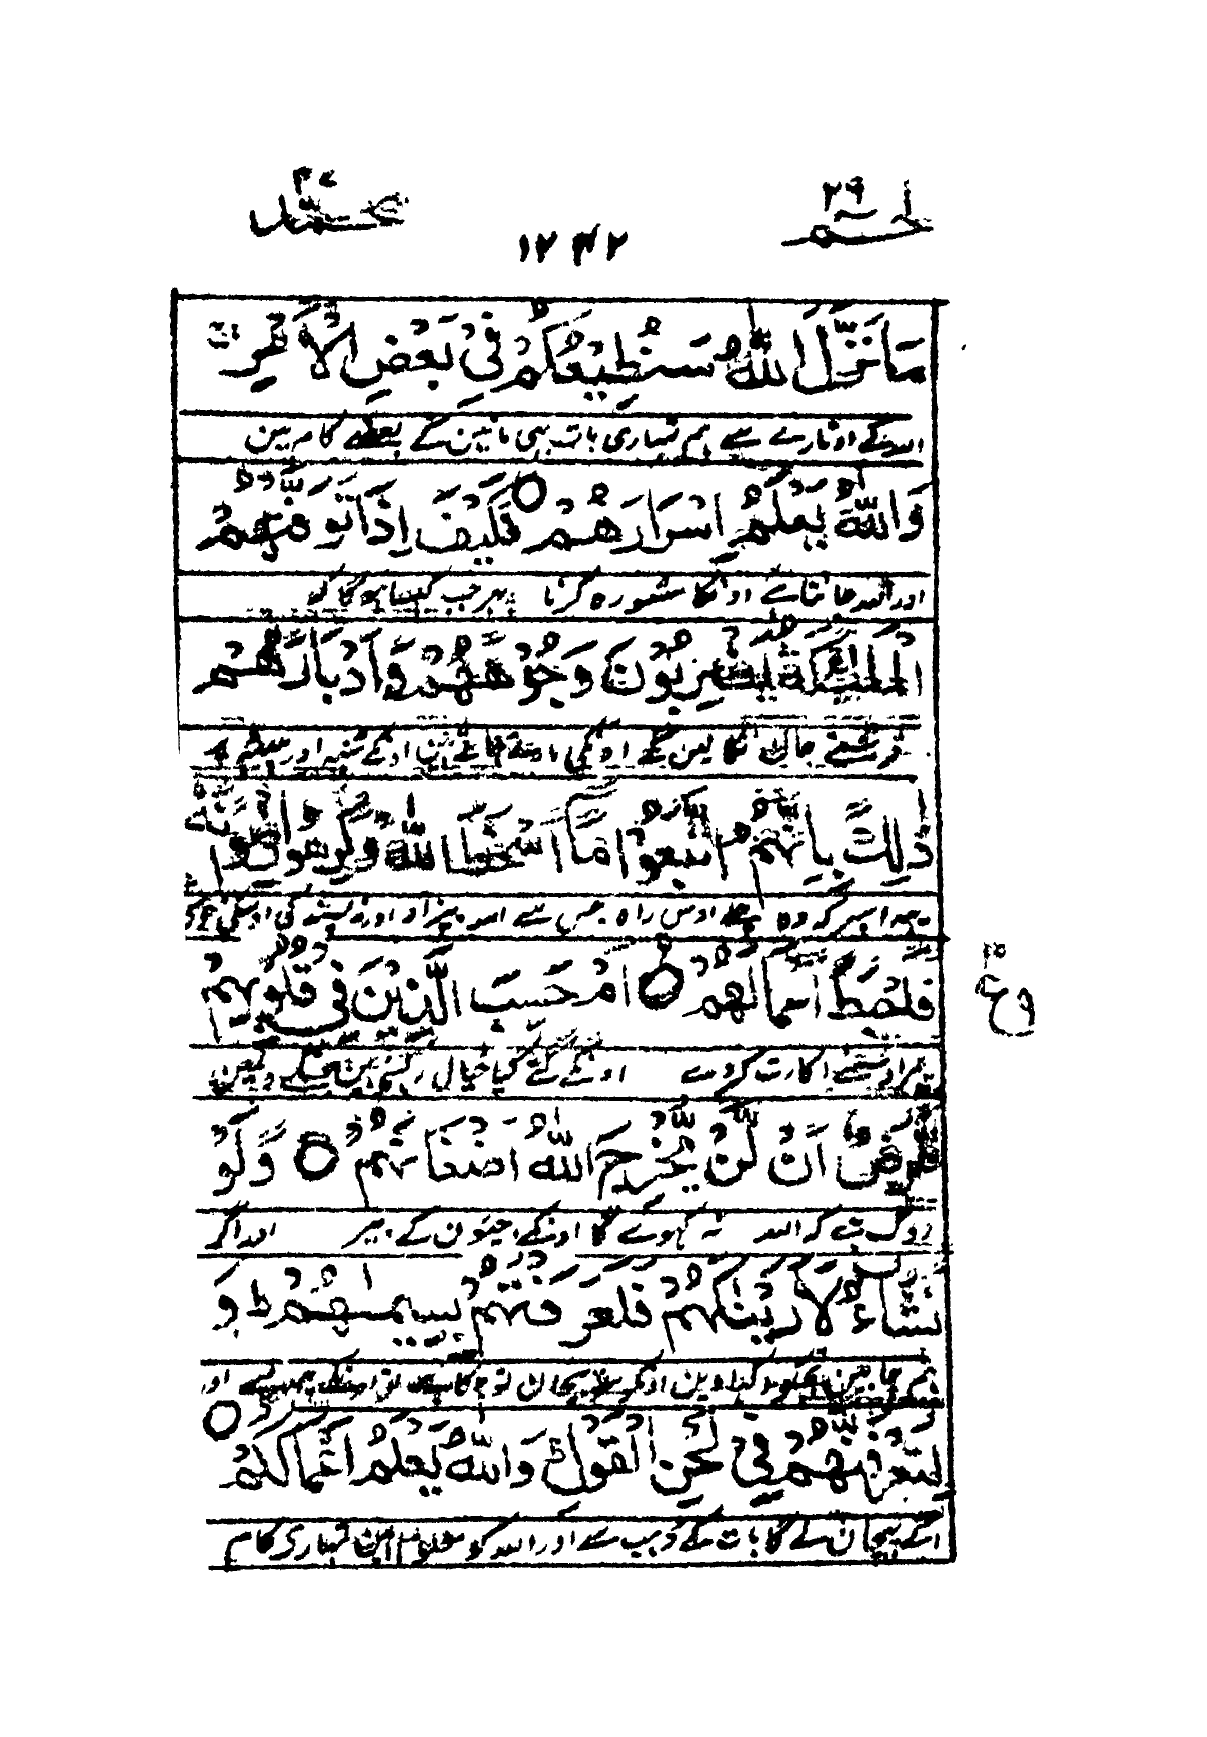 حٰم ۲۶ ۱۲۴۲ محمد ۴۷
مَا نَزَّلَ اللّٰهُ سَنُطِيْعُكُمْ فِيْ بَعْضِ الْاَمْرِ
اللہ کے اوتارے سے ہم تمہاری بات بہی مانین گے بعضے کامرین
وَاللّٰهُ يَعْلَمُ اِسْرَارَهُمْ ○ فَكَيْفَ اِذَا تَوَفَّتْهُمُ
اور اللہ جانتا ہے اونکا مشورہ کرنا پہر جب کیسا ہوگا کہ
الْمَلٰٓئِكَةُ يَضْرِبُوْنَ وُجُوْهَهُمْ وَاَدْبَارَهُمْ
فرشتے جان لین گے اونکی مارتے جاتے ہین اونکے منہ اور پیٹھ
ذٰلِكَ بِاَنَّهُمُ اتَّبَعُوْا مَآ اَسْخَطَ اللّٰهَ وَكَرِهُوْا رِضْوَانَهٗ
یہہ اسپر کہ وہ چلے اوس راہ جس سے اللہ بیزار اور نہ پسند کی اوسکی
فَاَحْبَطَ اَعْمَالَهُمْ ○ اَمْ حَسِبَ الَّذِيْنَ فِيْ قُلُوْبِهِمْ
ع
پہر اوسنے اکارت کردے اونکے کئے کیا خیال رکھتے ہین جنکے دلمین
مَّرَضٌ اَنْ لَّنْ يُّخْرِجَ اللّٰهُ اَضْغَانَهُمْ ○ وَلَوْ
روگ ہے کہ اللہ نہ کہولے گا اونکے جیون کے بیر اور اگر
نَشَآءُ لَاَرَيْنٰكَهُمْ فَلَعَرَفْتَهُمْ بِسِيْمٰهُمْ ط وَ
ہم چاہین تجکو دکہادین اونکو سو پہچان تو چکا ہے تو اونکو چہرے سے اور
لَتَعْرِفَنَّهُمْ فِيْ لَحْنِ الْقَوْلِ ط وَاللّٰهُ يَعْلَمُ اَعْمَالَكُمْ ○
آگے پہچان لے گا بات کے ڈہب سے اور اللہ کو معلوم ہین تمہاری کام